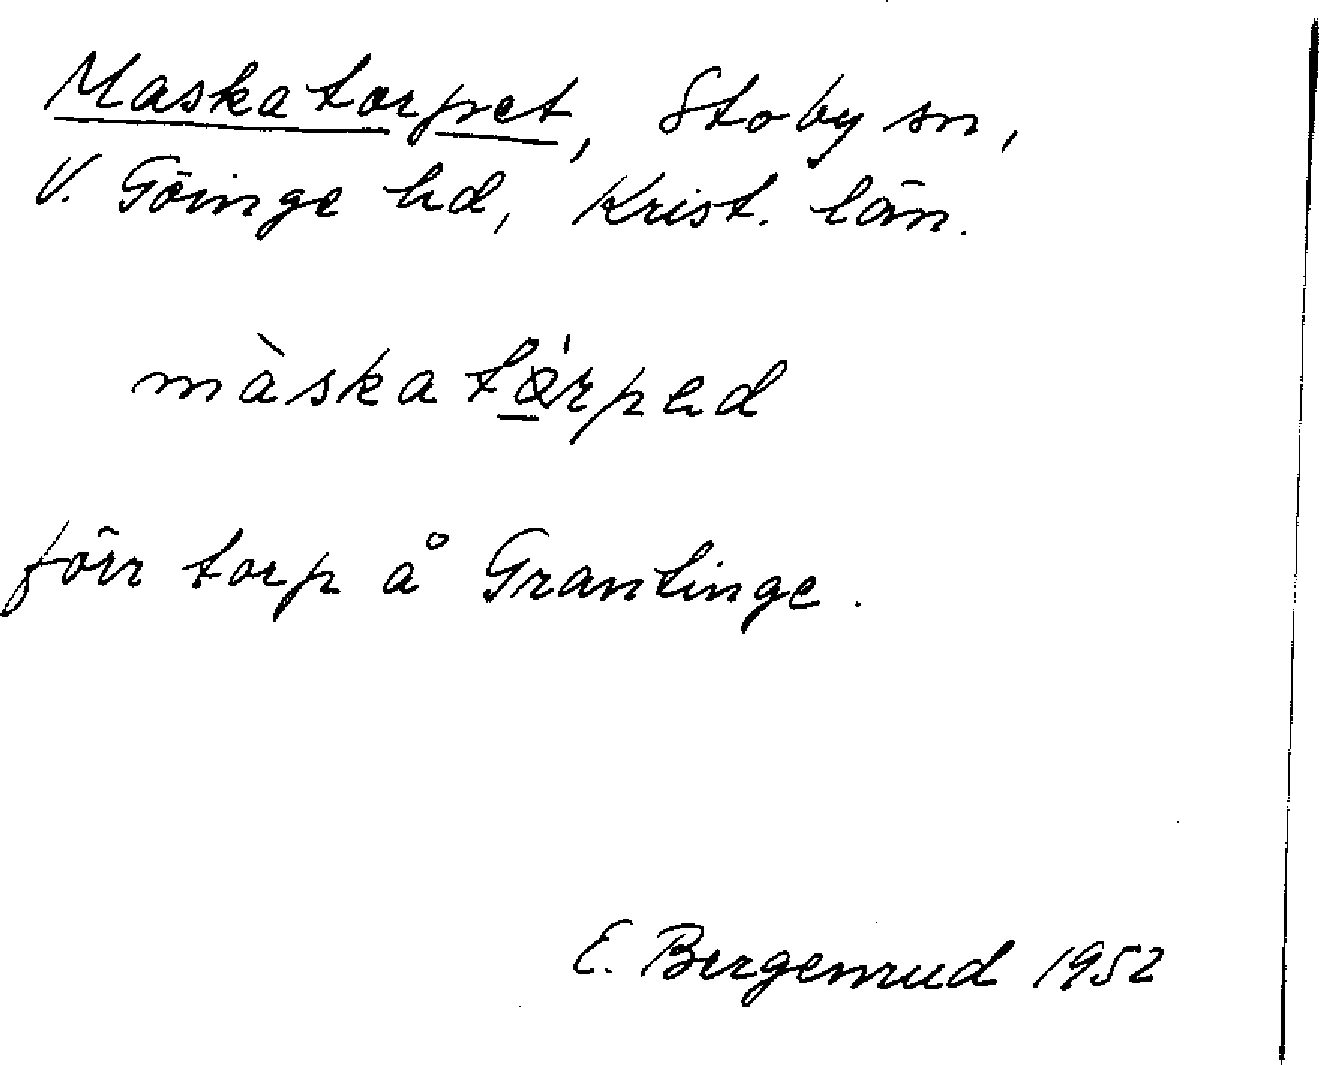 Maskatorpet, Stoby sn,
V. Göinge hd, Krist. län.
màskatǿrped
förr torp å Grantinge.
E. Bergenrud 1952